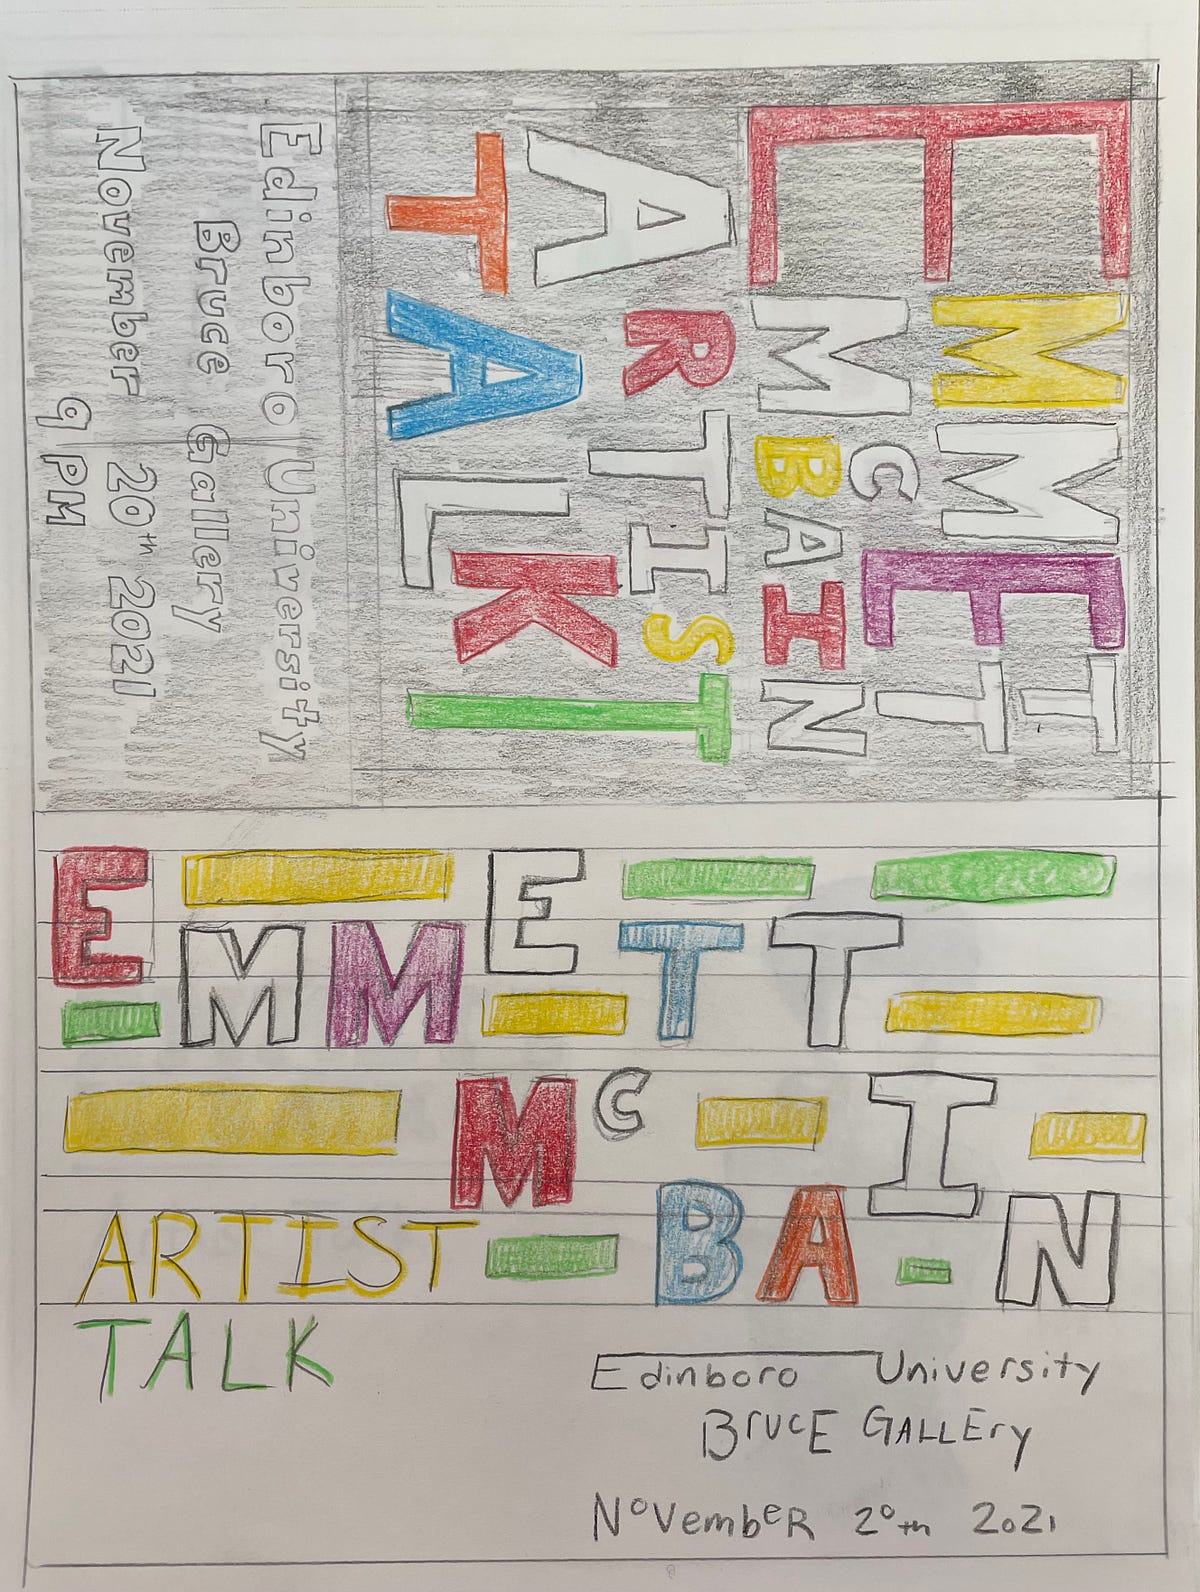 EMMETT
MCBAIN
ARTIST
TALK
Edinboro University
Bruce Gallery
November 20th 2021
9 PM
EMMETT
MCBAIN
ARTIST
TALK
Edinboro University
BrucE GALLEry
NoVembeR 20th 2021